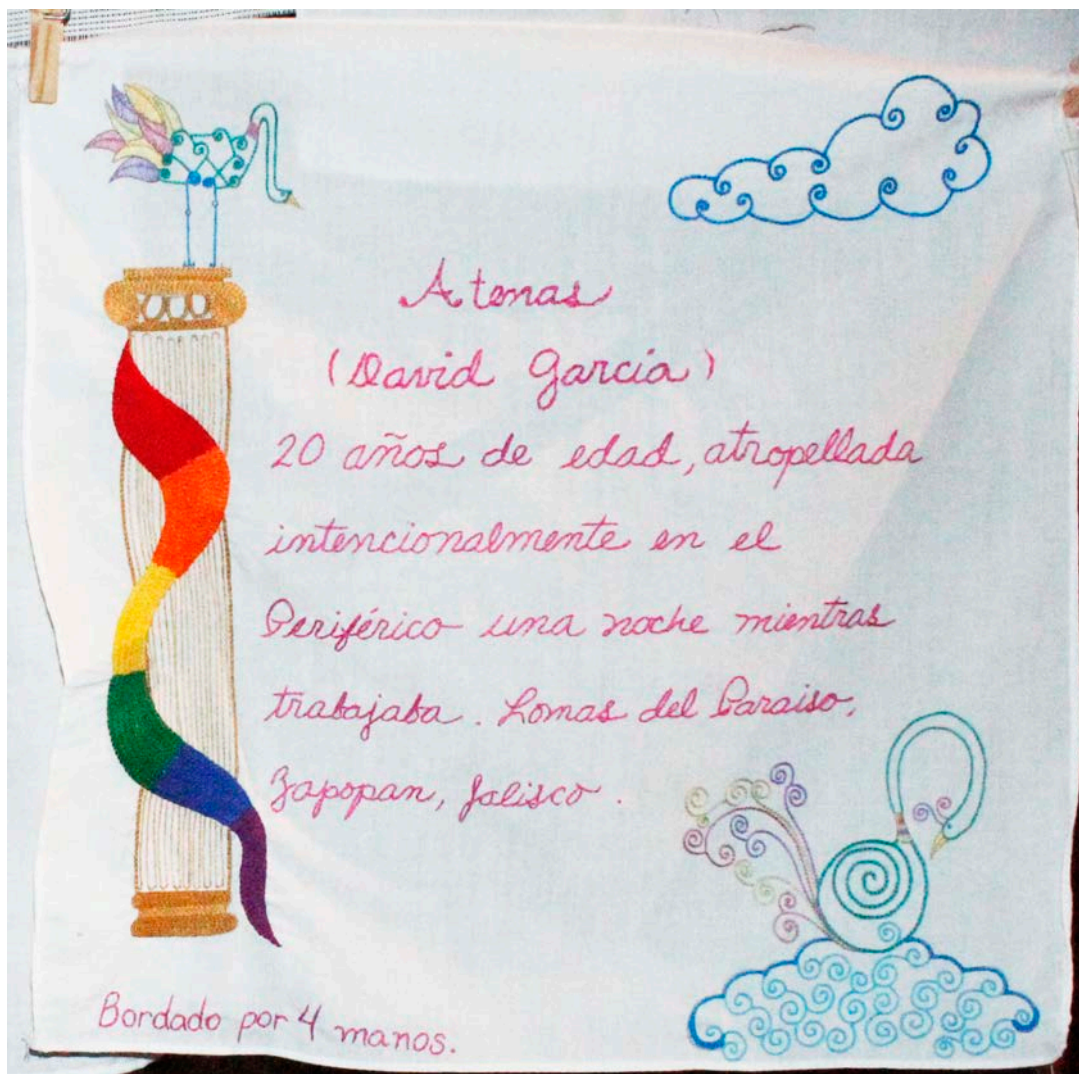 Atenas
(David García)
20 años de edad, atropellada
intencionalmente en el
Periférico una noche mientras
trabajaba. Lomas del Paraiso,
Zapopan, Jalisco.
Bordado por 4 manos.